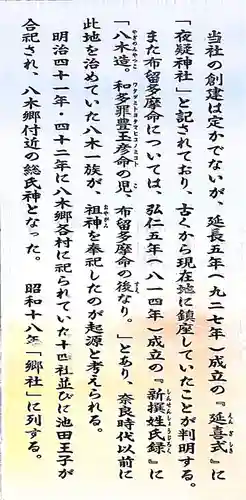 当社の創建は定かでないが、延長五年(九二七年)成立の『延喜式』に
「夜疑神社」と記されており、古くから現在地に鎮座していたことが判明する。
また布留多摩命については、弘仁五年(八一四年)成立の『新撰姓氏録』に
「八木造。和多罪豊玉彦命の児、布留多摩命の後なり。」とあり、奈良時代以前に
此地を治めていた八木一族が、祖神を奉祀したのが起源と考えられる。
明治四十一年・四十二年に八木郷各村に祀られていた十四社並びに池田王子が
合祀され、八木郷付近の総氏神となった。 昭和十八年「郷社」に列する。